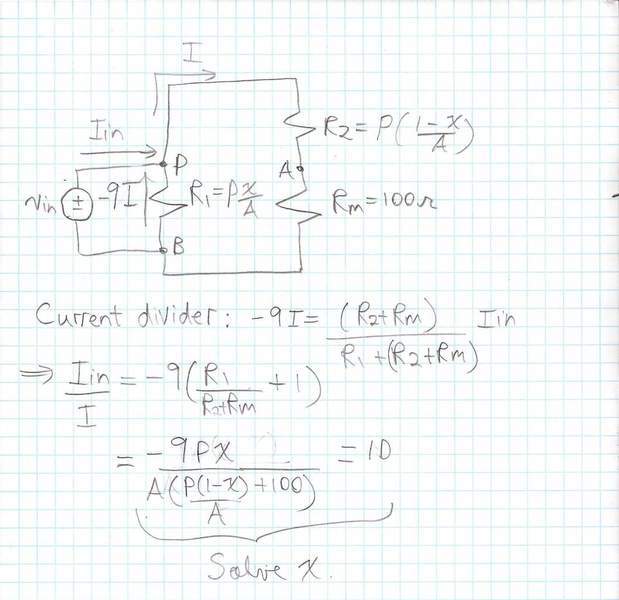 I
Iin
R2=P(1-x/A)
P
A
Vin
±
-9I
R1=Px/A
Rm=100Ω
B
Current divider: -9I= (R2+Rm)/(R1+(R2+Rm)) Iin
⇒ Iin/I = -9(R1/(R2+Rm) + 1)
= -9Px/(A(P(1-x)/A +100)) = 10
Solve x.